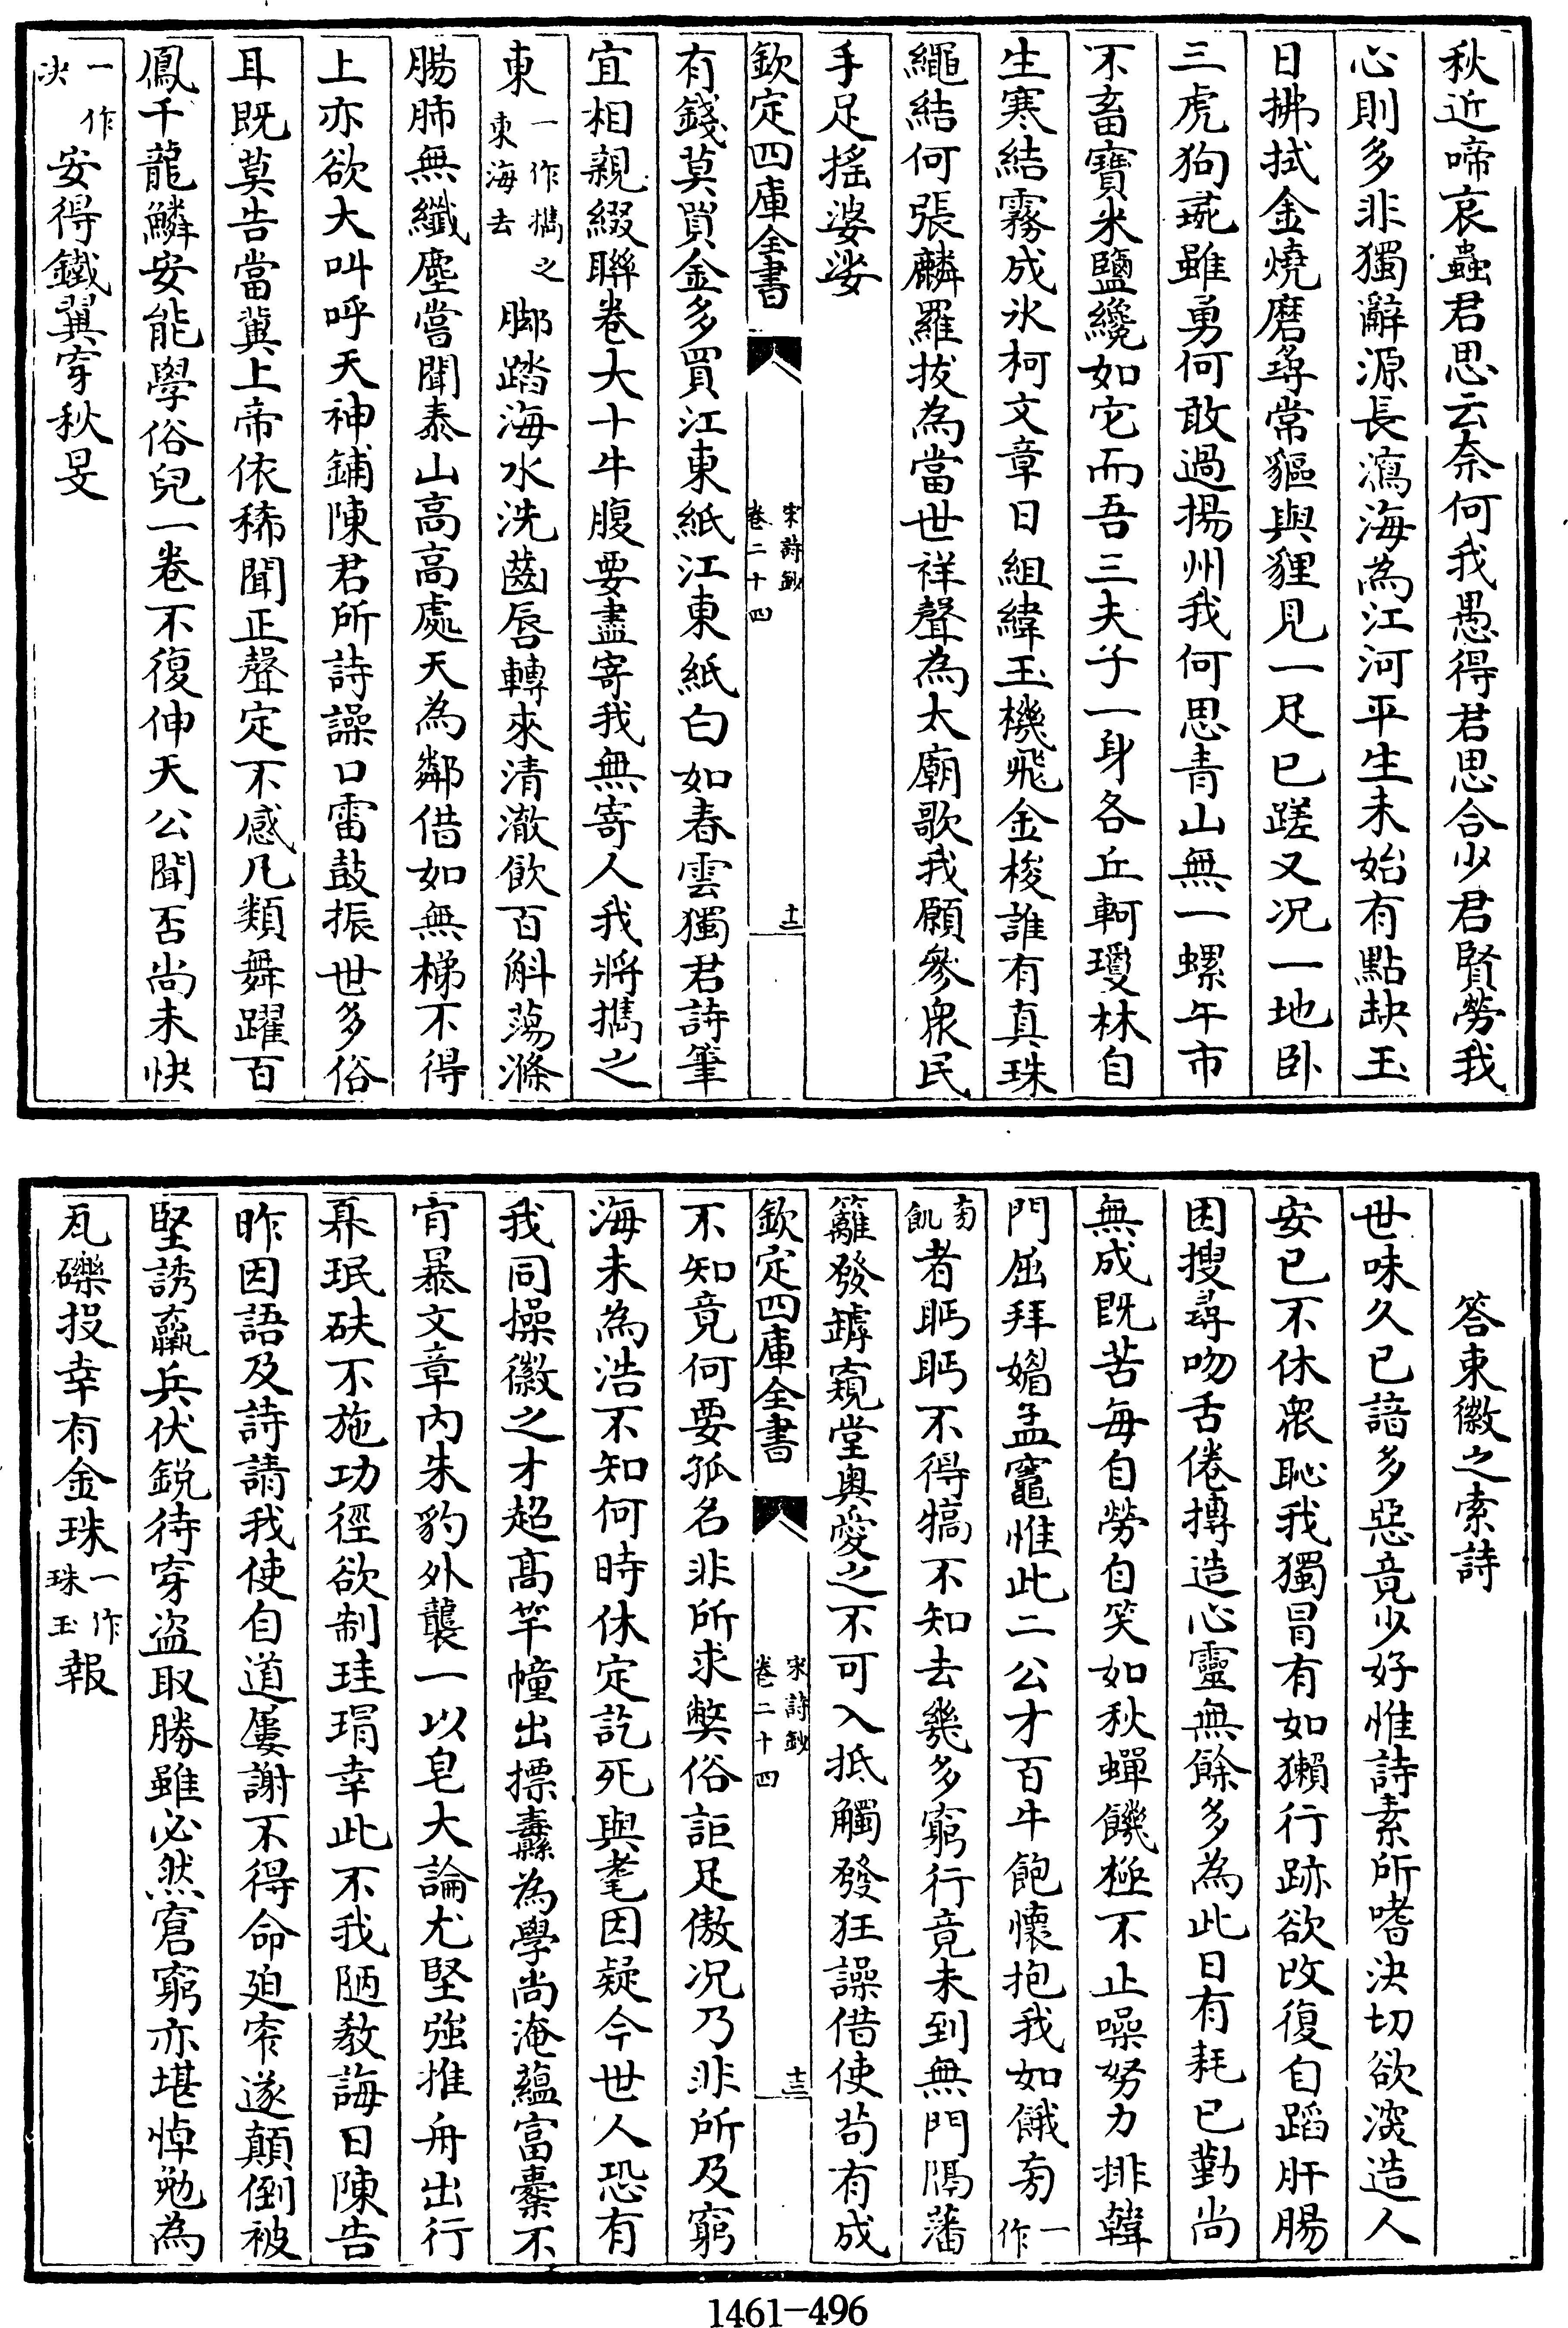 秋近啼哀蟲君思云奈何我愚得君思合少君賢勞我
心則多非獨辭源長瀉海為江河平生未始有點缺玉
日拂拭金燒磨尋常貙與狸見一足已蹉又况一地卧
三虎狗琬雖勇何敢過揚州我何思青山無一螺午市
不畜寶米鹽纔如它而吾三夫子一身各丘軻瓊林自
生寒結霧成氷柯文章日組緯玉機飛金梭誰有真珠
繩結何張麟羅拔為當世祥聲為太廟歌我願參衆民
手足搖婆娑
欽定四庫全書
宋詩鈔
卷二十四
十二
有錢莫買金多買江東紙江東紙白如春雲獨君詩筆
宜相親綴聯卷大十牛腹要盡寄我無寄人我將攜之
東一作攜之東海去脚踏海水洗齒唇轉來清澈飲百斛蕩滌
腸肺無纖塵嘗聞泰山高高處天為鄰借如無梯不得
上亦欲大叫呼天神鋪陳君所詩譟口雷鼓振世多俗
耳既莫告當冀上帝依稀聞正聲定不感凡類舞躍百
鳳千龍鱗安能學俗兒一卷不復伸天公聞否尚未快
一作決安得鐵翼穿秋旻
答束徽之索詩
世味久已諳多惡竟少好惟詩素所嗜決切欲深造人
安已不休衆恥我獨冒有如獺行跡欲改復自蹈肝腸
困搜尋吻舌倦摶造心靈無餘多為此日有耗已勤尚
無成既苦每自勞自笑如秋蟬饑極不止噪努力排韓
門屈拜媚孟竈惟此二公才百牛飽懷抱我如餓芻一作
芻飢者眄眄不得犒不知去幾多窮行竟未到無門隔藩
籬發罅窺堂奧愛之不可入抵觸發狂譟借使茍有成
欽定四庫全書
宋詩鈔
卷二十四
十三
不知竟何要孤名非所求獘俗詎足傲况乃非所及窮
海未為浩不知何時休定訖死與耄因疑今世人恐有
我同操徽之才超高竿幢出摽纛為學尚淹蘊富橐不
肎暴文章内朱豹外襲一以皂大論尤堅強推舟出行
奡珉砆不施功徑欲制珪瑁幸此不我陋教誨日陳告
昨因語及詩請我使自道屢謝不得命廹窄遂顛倒被
堅誘羸兵伏鋭待穿盜取勝雖必然窘窮亦堪悼勉為
瓦礫投幸有金珠一作珠玉報
1461—496